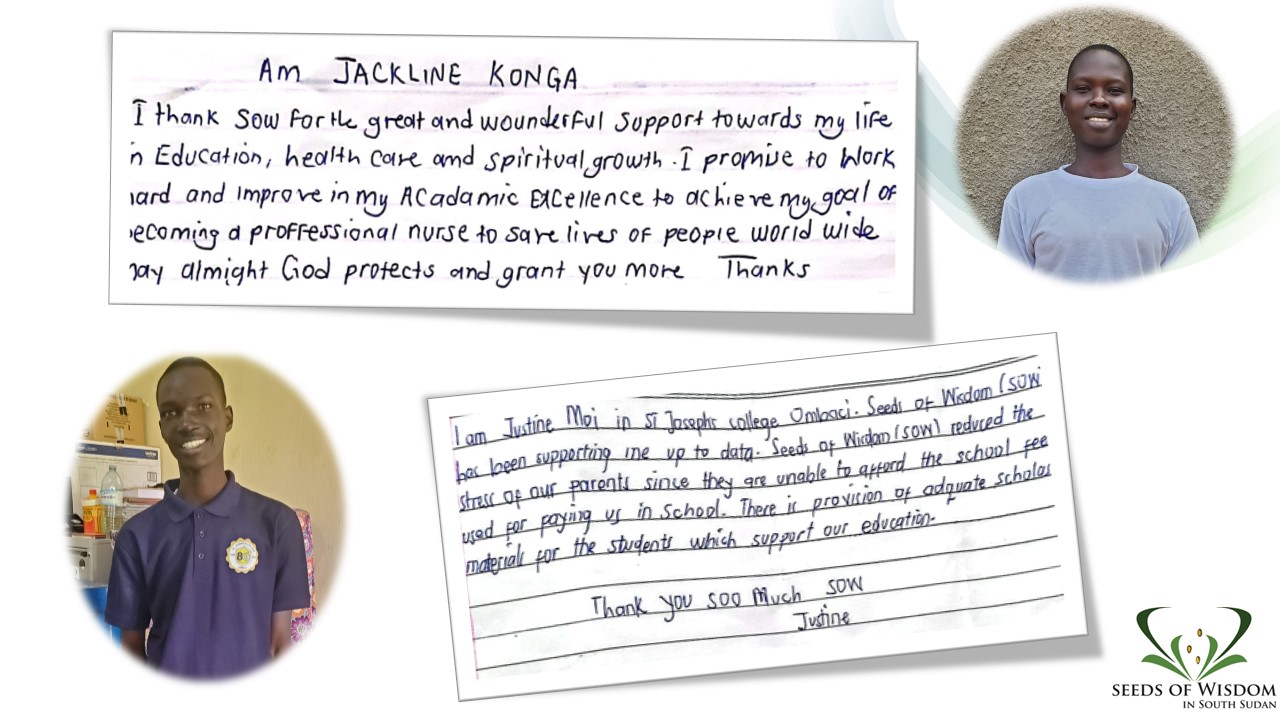 Am JACKLINE KONGA
I thank Sow For the great and wounderful support towards my life
n Education, health care and spiritual growth. I promise to Work
ard and Improve in my ACadamic ExCellence to achieve my goal of
ecoming a proffessional nurse to save lives of people world wide
ay almight God protects and grant you more Thanks
I am Justine Moi in ST Josephs college Ombaci. Seeds of Wisdom (SOW
has been supporting me up to data. Seeds of Wisdom (SOW) reduced the
stress of our parents since they are unable to afford the school fee
used for paying us in school. There is provision of adquate scholas
materials for the students which support our education.
Thank you soo Much SOW
Justine
SEEDS OF WISDOM
IN SOUTH SUDAN